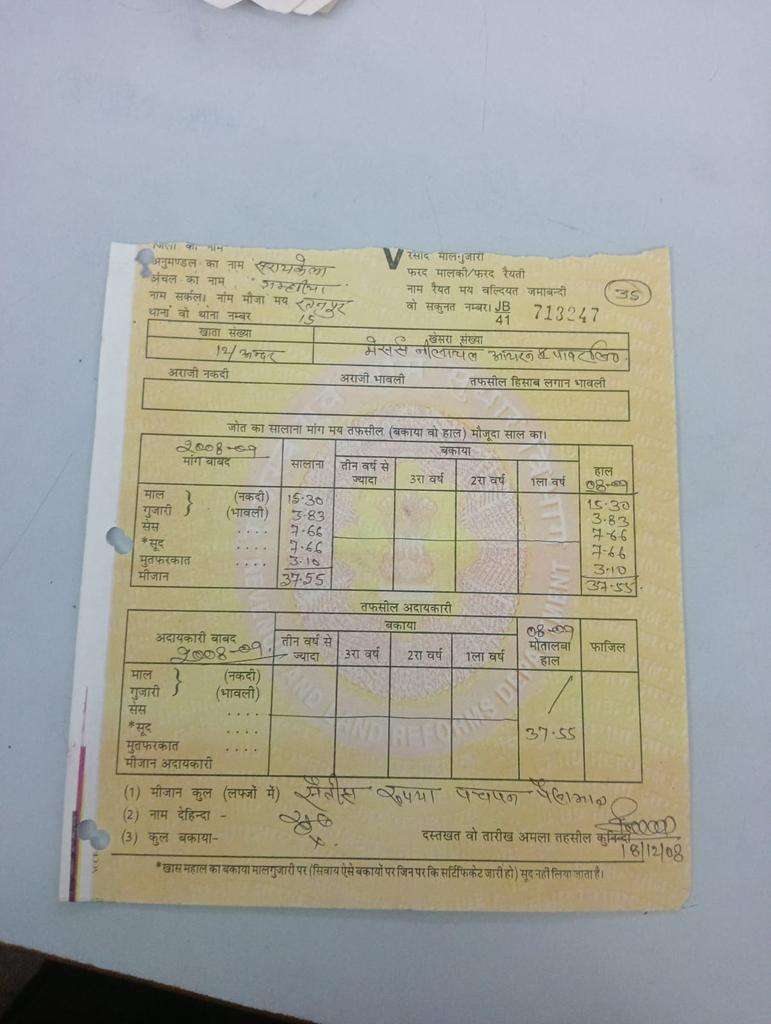 जिला का नाम
अनुमण्डल का नाम सरायकेला
अंचल का नाम गम्हरिया
नाम सर्कल। नाम मौजा मय रतनपुर
थाना वो थाना नम्बर 15
V रसीद मालगुजारी
फरद मालकी/फरद रैयती
नाम रैयत मय वल्दियत जमाबन्दी
वो सकुनत नम्बर। JB 41 713247
35
खाता संख्या खेसरा संख्या
12/अन्दर मेसर्स नीलाचल आयरन & पावर लि०
अराजी नकदी अराजी भावली तफसील हिसाब लगान भावली
जोत का सालाना मांग मय तफसील (बकाया वो हाल) मौजूदा साल का।
2008-09
मांग बाबद सालाना बकाया हाल
तीन वर्ष से ज्यादा 3रा वर्ष 2रा वर्ष 1ला वर्ष 08-09
माल } (नकदी) 15.30 15.30
गुजारी } (भावली) 3.83 3.83
सेस .... 7.66 7.66
*सूद .... 7.66 7.66
मुतफरकात 3.10 3.10
मीजान 37.55 37.55
तफसील अदायकारी
अदायकारी बाबद बकाया 08-09
2008-09 तीन वर्ष से ज्यादा 3रा वर्ष 2रा वर्ष 1ला वर्ष मोतालबा हाल फाजिल
माल } (नकदी)
गुजारी } (भावली)
सेस ....
*सूद .... 37.55
मुतफरकात ....
मीजान अदायकारी
(1) मीजान कुल (लफ्जों में) सैंतीस रुपया पचपन पैसा मात्र
(2) नाम देहिन्दा -
(3) कुल बकाया- ×
दस्तखत वो तारीख अमला तहसील कुनिन्दा
18/12/08
*खास महाल का बकाया मालगुजारी पर (सिवाय ऐसे बकायों पर जिन पर कि सर्टिफिकेट जारी हो) सूद नहीं लिया जाता है।